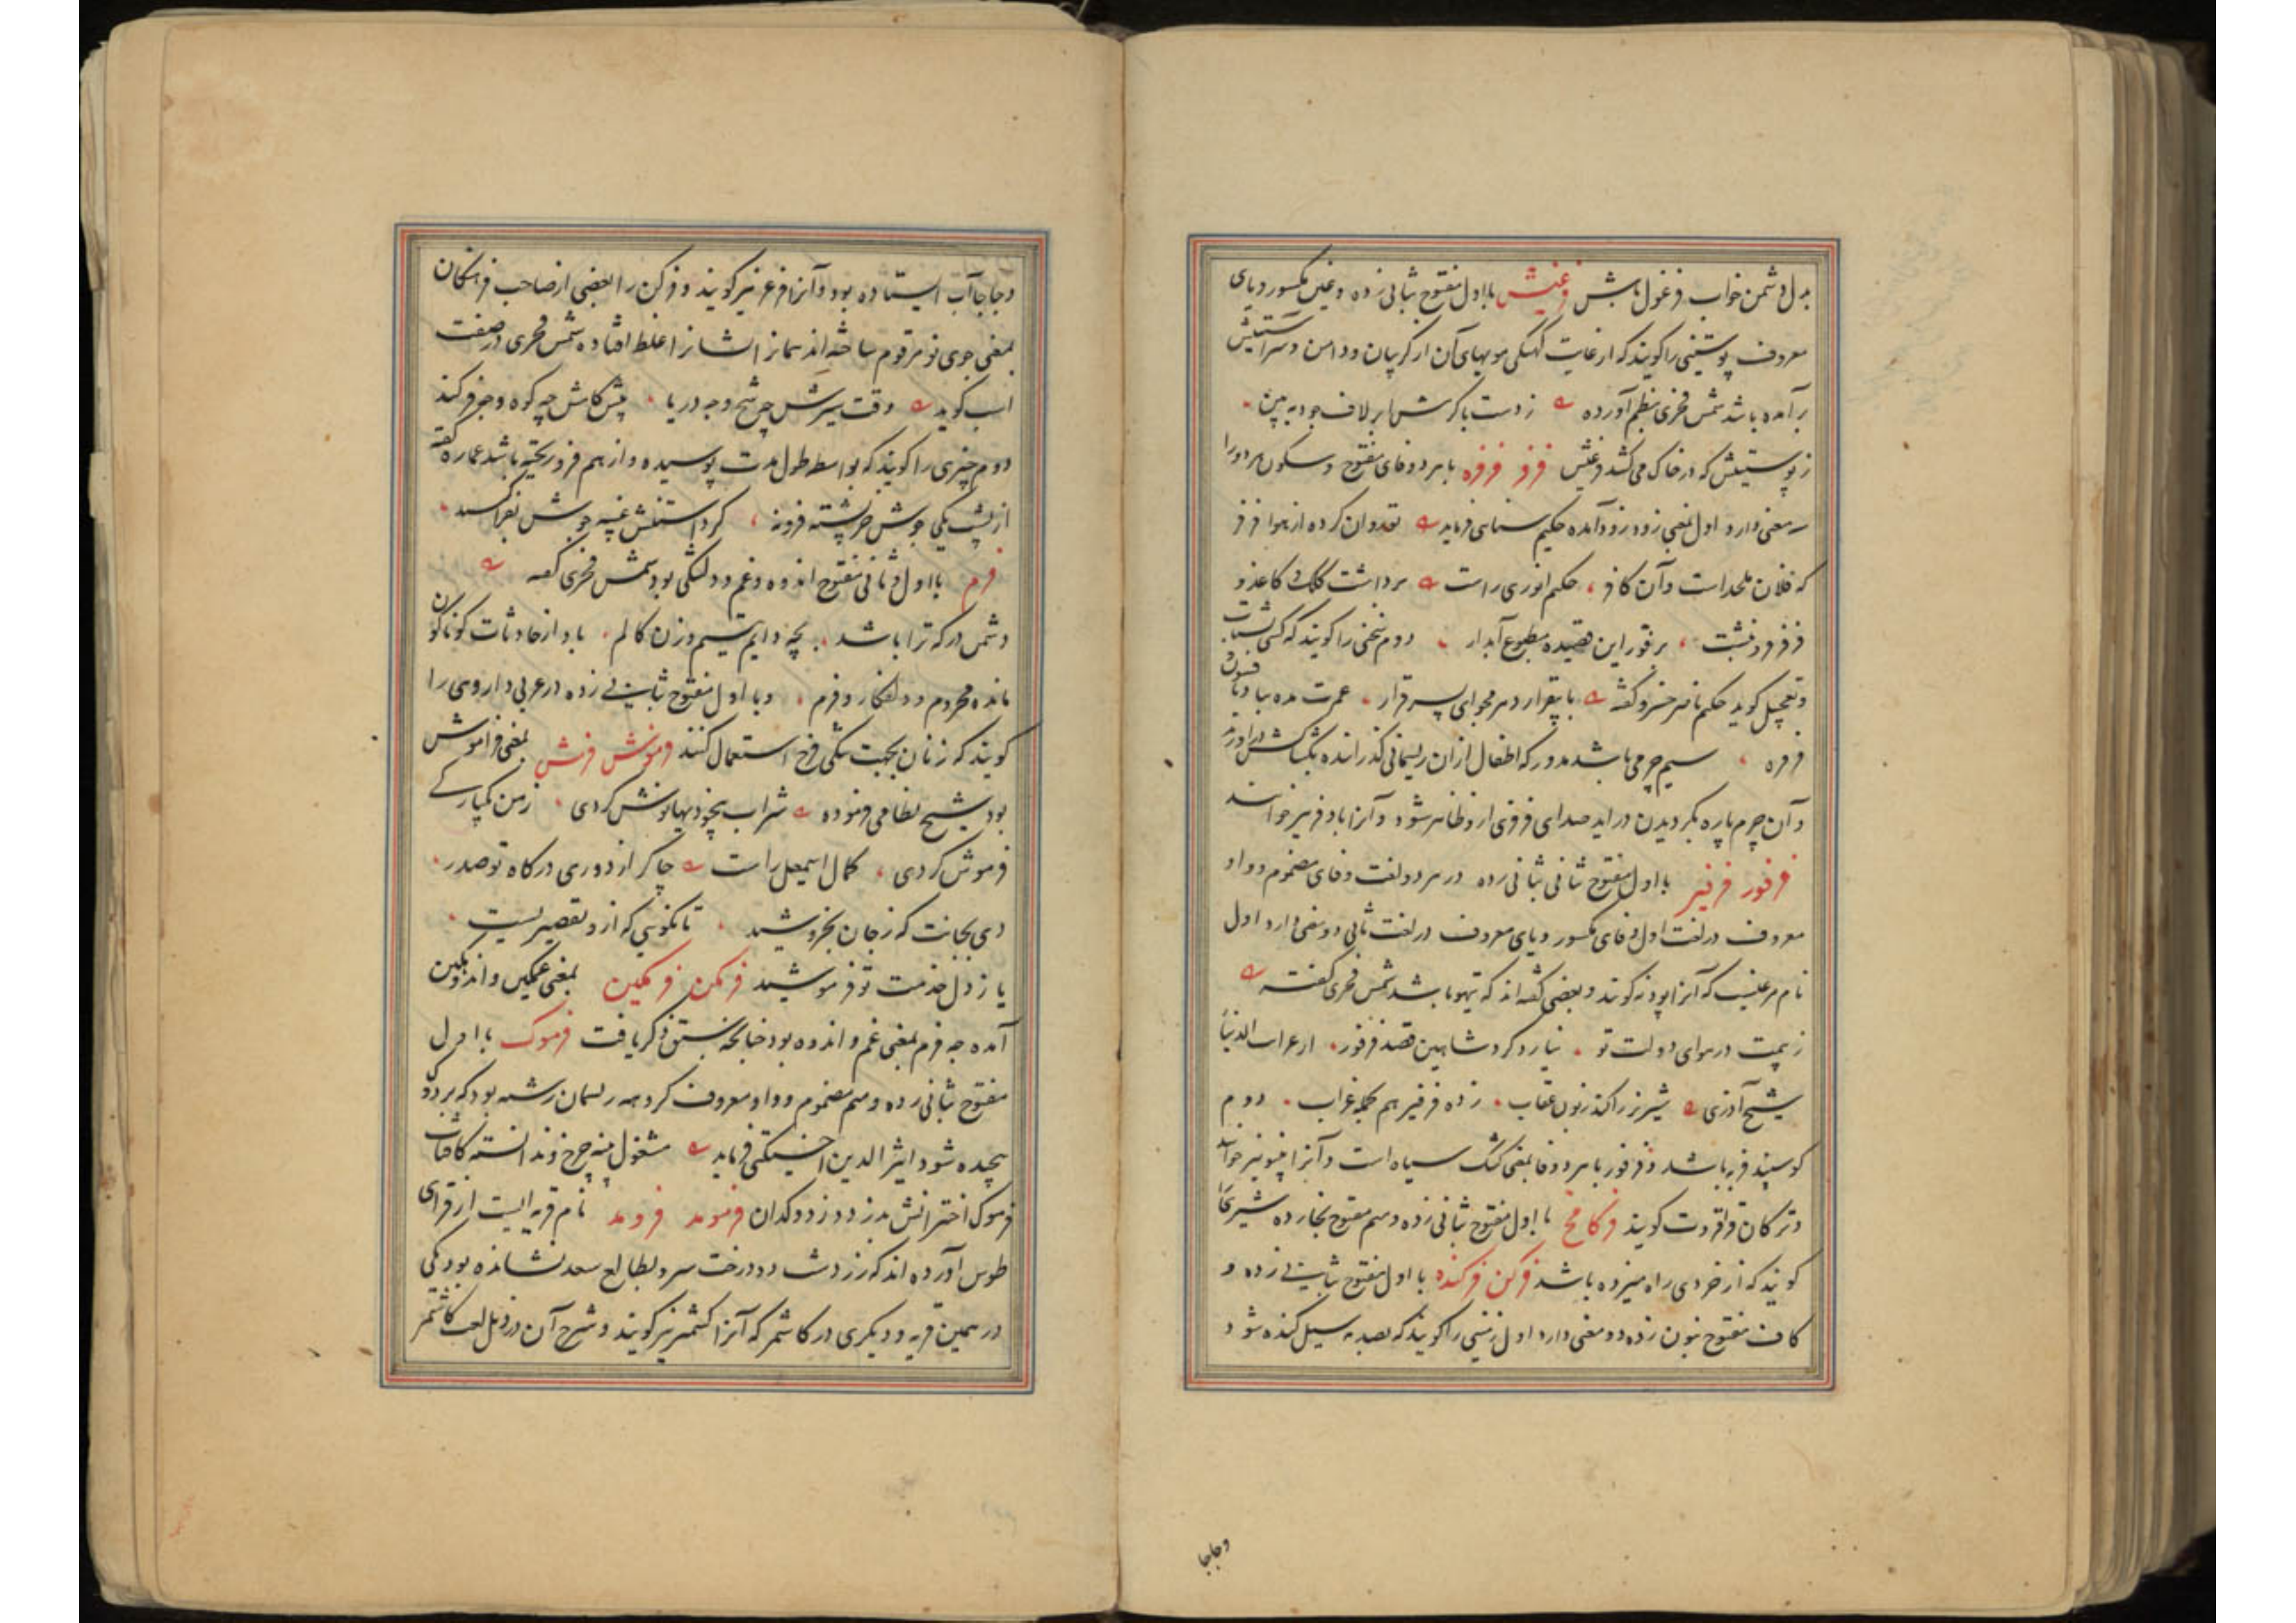 بدل دشمن خواب فرغول باش فرغیش با اول مفتوح بثانی زده و غین مکسور و یای
معروف پوستینی را کویند که از غایت کهنکی مویهای آن از کریبان و دامن و سر آستینش
بر آمده باشد شمس فخری بنظم آورده ز دست باکرش ابر لاف جود ببین
ز پوستینش که در خاک می کشد فرغیش فرفر فرفره با هر دو فای مفتوح و سکون هر دو را
سه معنی دارد اول بمعنی زود زود آمده حکیم سنایی فرماید کرده از هوا فرفر
که فلان ملحد است و آن کافر حکیم انوری راست برداشت کلک و کاغذ و
فرفر فرو نبشت بر فور این قصیده مطبوع آبدار دوم سخنی را کویند که کسی بشتاب
و تعجیل کوید حکیم ناصر خسرو کفته با بیقرار دهر مجوی ای پسر قرار عمرت مده بباد بافسون و
فرفره سیم چرمی باشد مدور که اطفال از آن ریسمانی کذرانند بکشاکش در آورند
و آن چرم پاره بکردیدن در آید صدای فرفری ازو ظاهر شود و آنرا بادفر نیز خوانند
فرفور فرفیر با اول مفتوح ثانی بثانی زده در هر دو لغت و فای مضموم و واو
معروف در لغت اول و فای مکسور و یای معروف در لغت ثانی دو معنی دارد اول
نام مرغیست که آنرا پودنه کویند و بعضی کفته اند که تیهو باشد شمس فخری کفته
ز بیمت در هوای دولت تو نیارد کرد شاهین قصد فرفور از غرائب الدنیا
شیخ آذری شیر نر را کند زبون عقاب زده فرفیر هم بحمله غراب دوم
کوسپند فربه باشد و فرفور با هر دو فا بمعنی کشک سیاه است و آنرا پینو نیز خوانند
و ترکان قراقروت کویند فرکامخ با اول مفتوح ثانی زده و میم مفتوح بخا زده شیر بخا
کویند که از خردی راه میزده باشد فرکن فرکند با اول مفتوح بثانی زده و
کاف مفتوح بنون زده دو معنی دارد اول زمینی را کویند که بصدمه سیل کنده شود
وجابجا
و جابجا آب ایستاده بود و آنرا فرغر نیز کویند و فرکن را بعضی از صاحب فرهنکان
بمعنی جوی نو مرقوم ساخته اند همانا ایشانرا غلط افتاده شمس فخری در صفت
اسب کوید وقت سیرش چه شخ و چه دریا پیش کامش چه کوه و چه فرکند
دوم چیزی را کویند که بواسطه طول مدت پوسیده و از هم فرو ریخته باشد عماره کفته
فرم با اول و ثانی مفتوح اندوه و غم و دلتنکی بود شمس فخری کفته
دشمن در که ترا باشد بچه دایم یتیم و زن کالم باد از حادثات کوناکون
مانده محروم و دلفکار و فرم و با اول مفتوح بثانی زده در عربی داروی را
کویند که زنان بجهت تنکی فرج استعمال کنند فرموش فرمش بمعنی فراموش
بود شیخ نظامی فرموده شراب بیخودیها نوش کردی ز من یکبارکی
فرموش کردی کمال اسمعیل راست چاکر از دوری درکاه تو صدر
دی بجانت که ز جان بخروشید تا نکویی که ازو تقصیریست
یا ز دل خدمت تو فرموشید فرمکن فرمکین بمعنی غمکین و اندوهکین
آمده چه فرم بمعنی غم و اندوه بود چنانچه پیشتر ذکر یافت فرموک با اول
مفتوح ثانی زده و میم مضموم و واو معروف کروهه ریسمان رشته بود که بر دوک
پیچیده شود اثیر الدین اخسیکتی فرماید مشغول پنبه چرخ و ندانسته کافتاب
فرموک اخترانش بدزدد ز دوکدان فرمومد فرومد نام قریه ایست از قرای
طوس آورده اند که زردشت دو درخت سرو بطالع سعد نشانده بود یکی
در همین قریه و دیکری در کاشمر که آنرا کشمر نیز کویند و شرح آن در ذیل لغت کاشمر